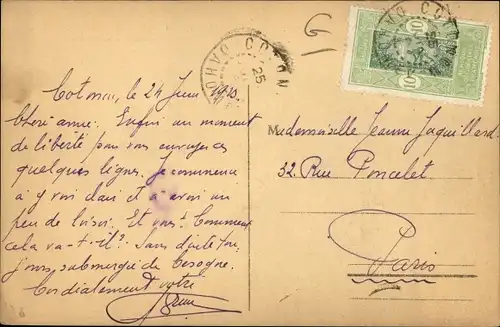 Cotonou, le 24 Juin 1920
Chère amie. Enfin un moment
de liberté pour vous envoyer
quelques lignes. Je commence
à y voir clair et à avoir un
peu de loisir. Et vous? Comment
cela va-t-il? Sans doute tou
jours submergée de besogne.
Cordialement votre
Mademoiselle Jeanne Jaquillard
32. Rue Poncelet
Paris
COTONOU
DAHOMEY
25
10
10
G